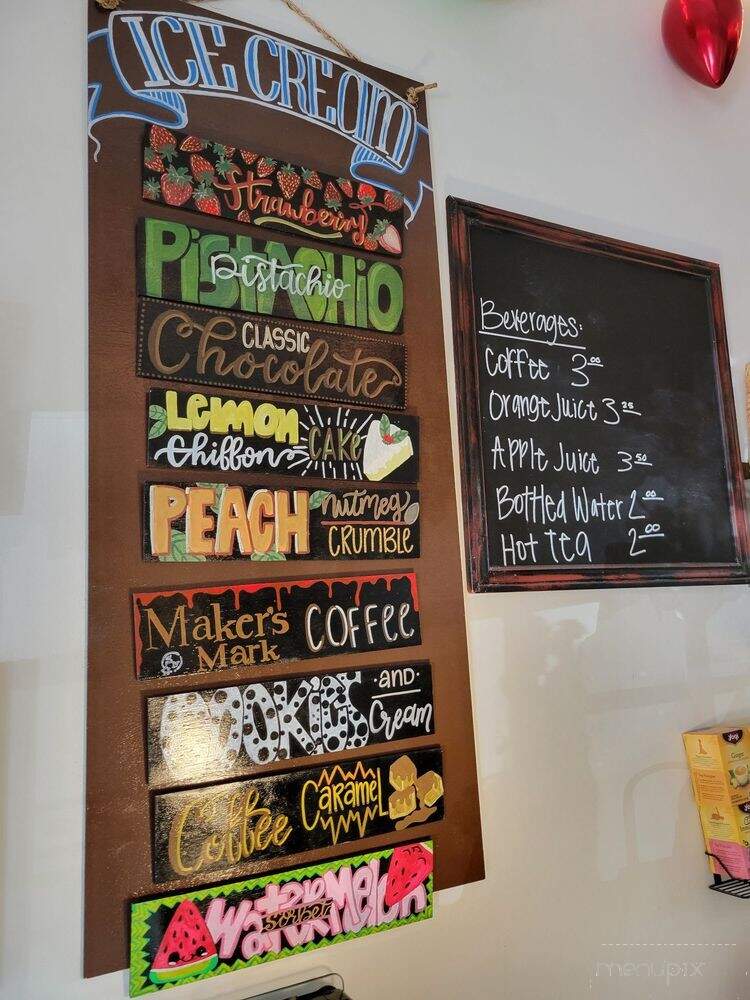 ICE CREAM
Strawberry
PiSTACHiO
Pistachio
CLASSIC
Chocolate
LEMON
Chiffon CAKE
PEACH nutmeg
CRUMBLE
Maker's
Mark COFFEE
COOKIES AND
Cream
Coffee CARAMEL
WATERMELON
sorbet
Beverages:
Coffee 3.00
Orange Juice 3.25
Apple Juice 3.50
Bottled Water 2.00
Hot Tea 2.00
yogi
Ginger
menupix